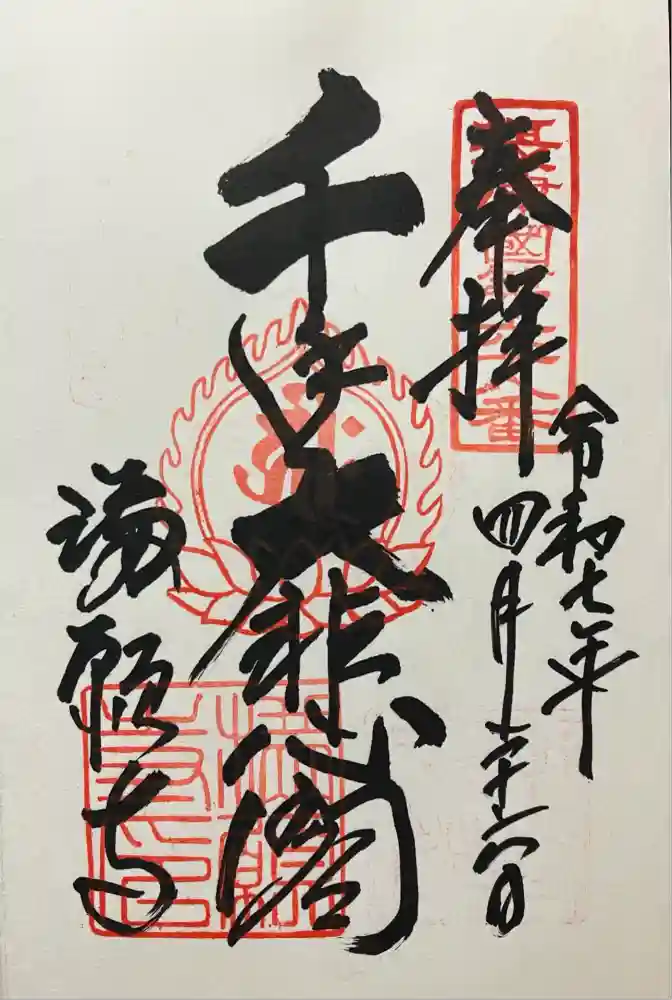 奉拝
令和七年
四月二十六日
千手大悲閣
満願寺